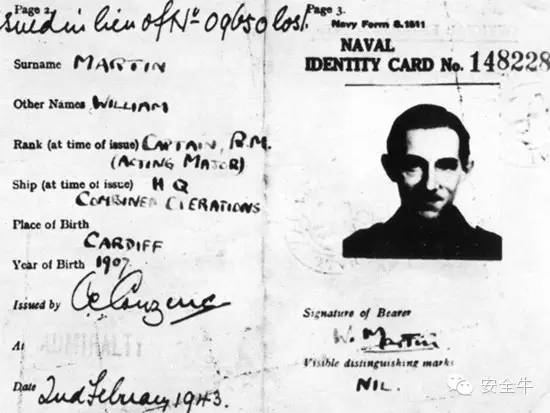 Page 2.
sued in lieu of No 09650 lost.
Surname MARTIN
Other Names WILLIAM
Rank (at time of issue) CAPTAIN, R.M.
(ACTING MAJOR)
Ship (at time of issue) HQ
COMBINED OPERATIONS
Place of Birth
CARDIFF
Year of Birth 1907
Issued by
At ADMIRALTY
Date 2nd February 1943.
Page 3.
Navy Form S.1511
NAVAL
IDENTITY CARD No. 148228
Signature of Bearer
W. Martin
Visible distinguishing marks
NIL.
安全牛